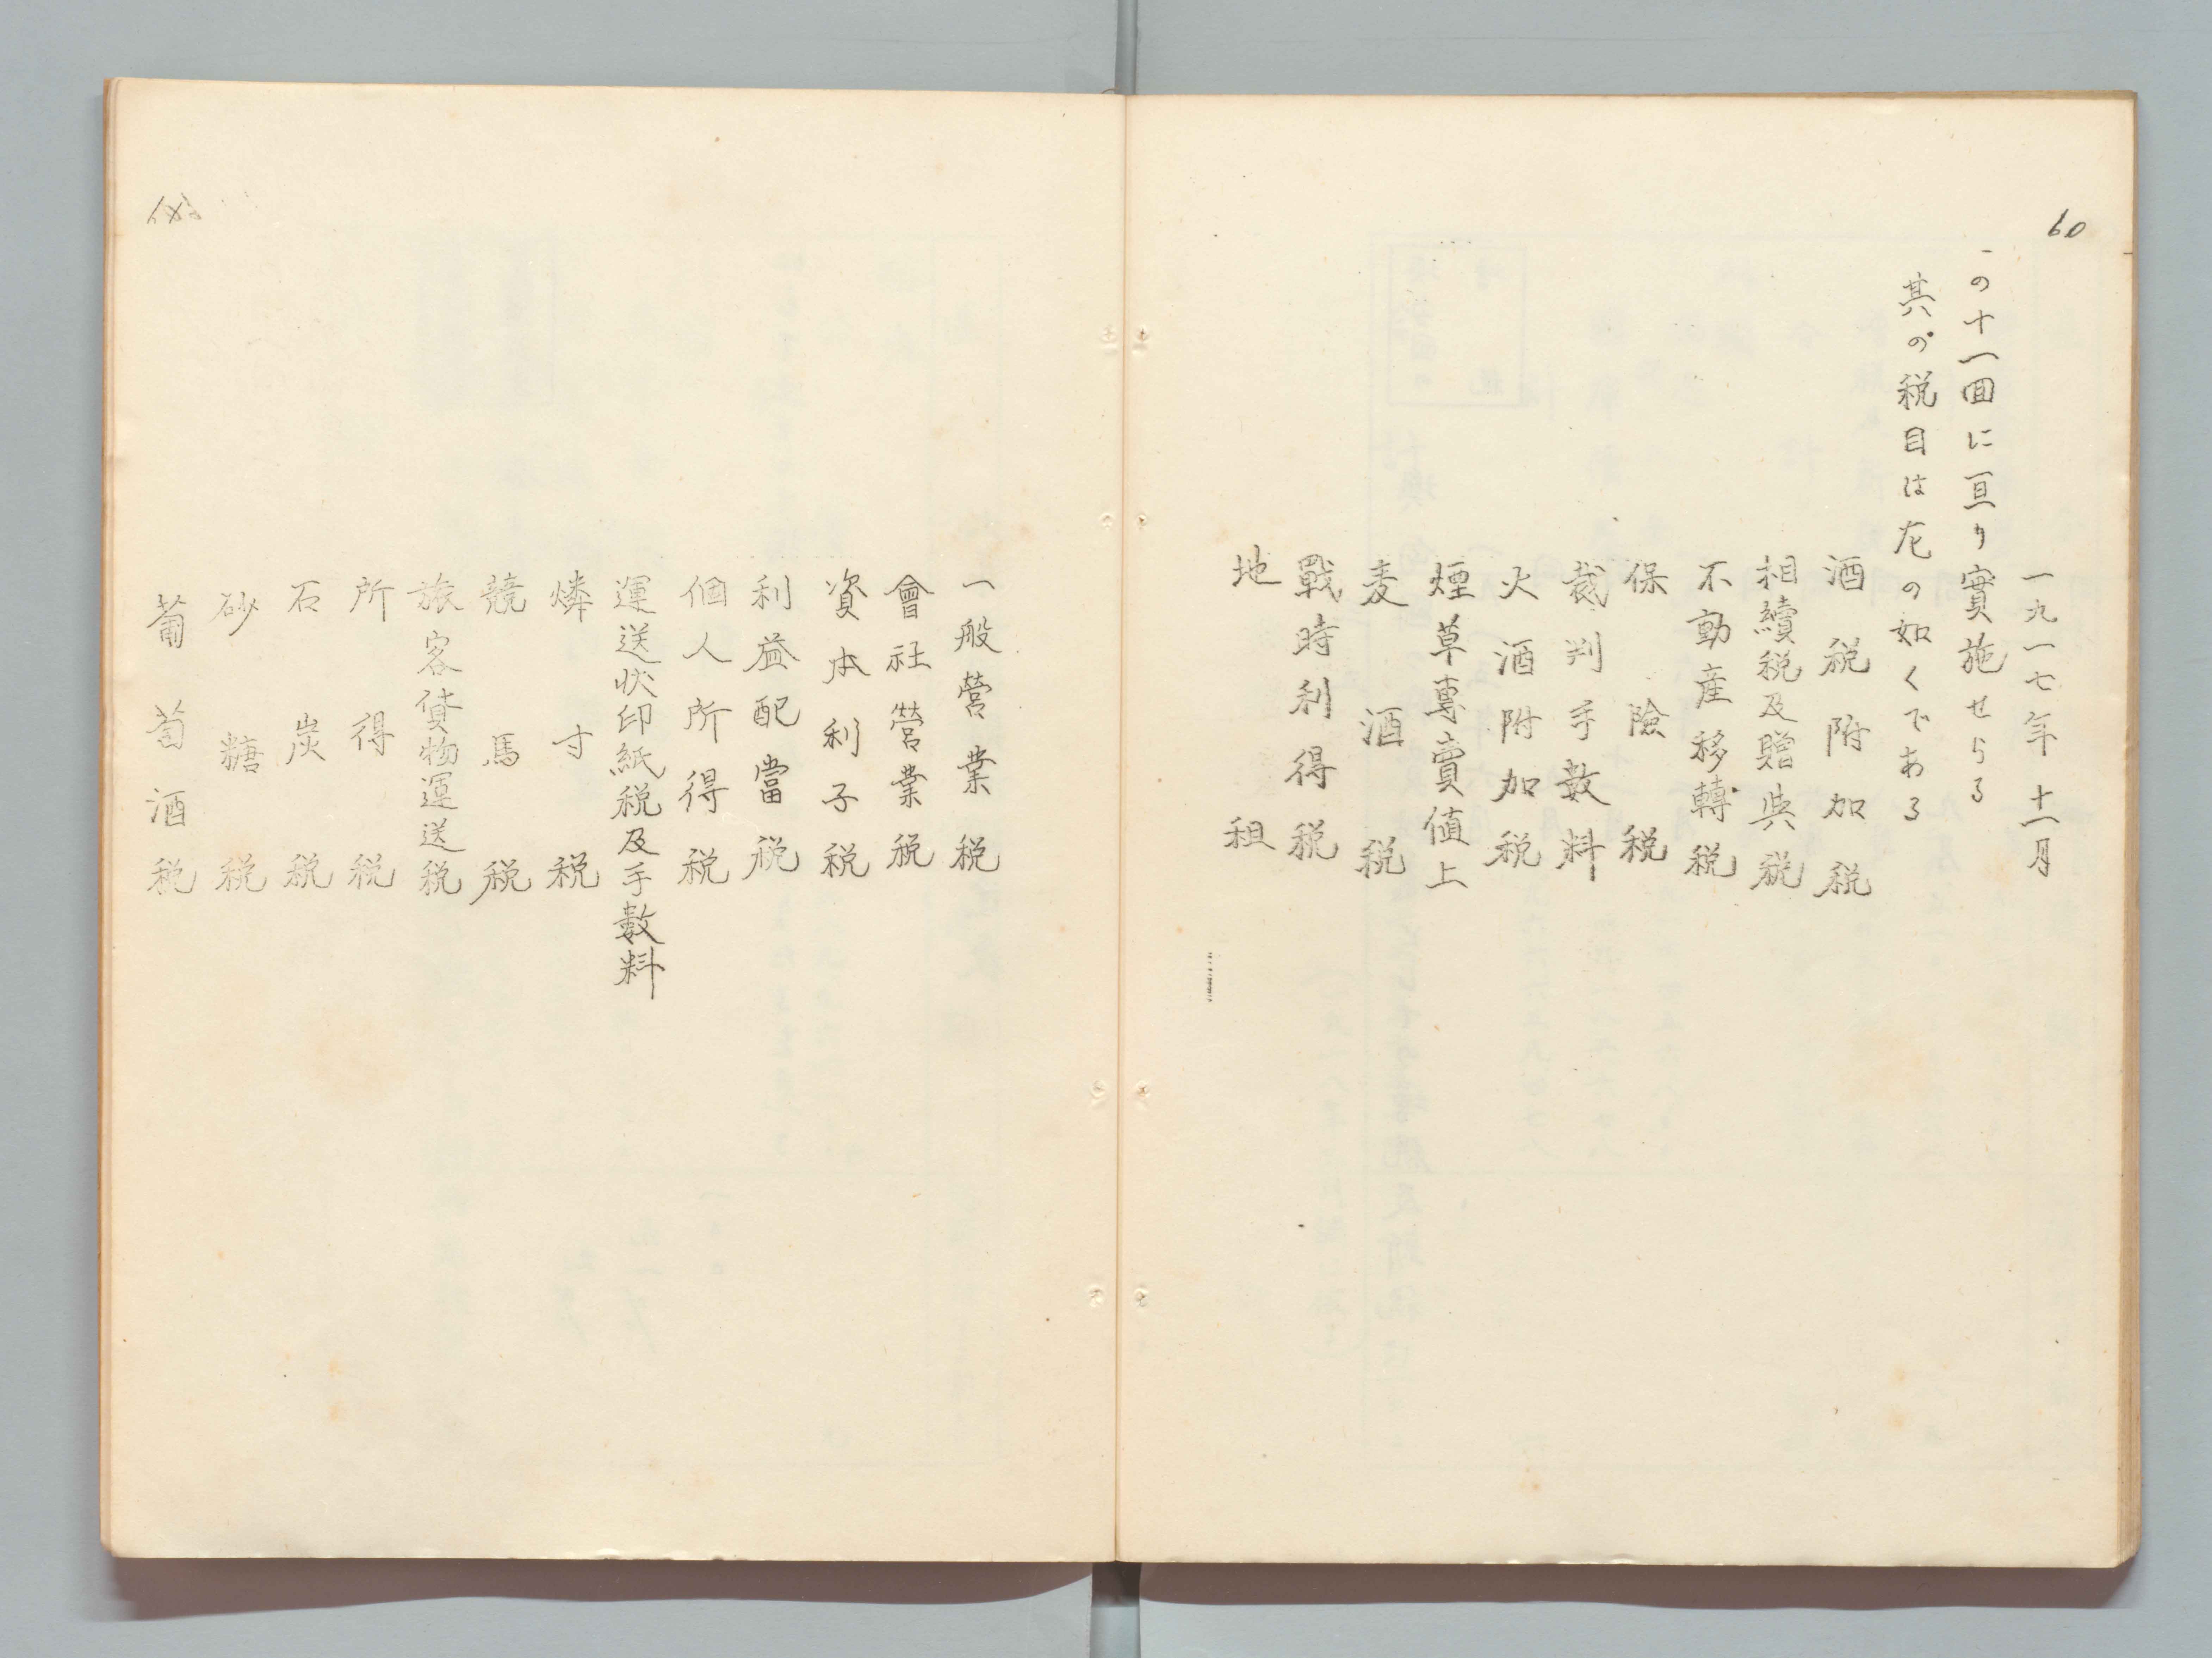 60
一九一七年十一月
この十一回に亘り實施せらる
其の税目は左の如くである
酒税附加税
相續税及贈與税
不動産移轉税
保險税
裁判手數料
火酒附加税
煙草專賣値上
麦酒税
戰時利得税
地租
一般營業税
會社營業税
資本利子税
利益配當税
個人所得税
運送状印紙税及手數料
燐寸税
競馬税
旅客貨物運送税
所得税
石炭税
砂糖税
葡萄酒税